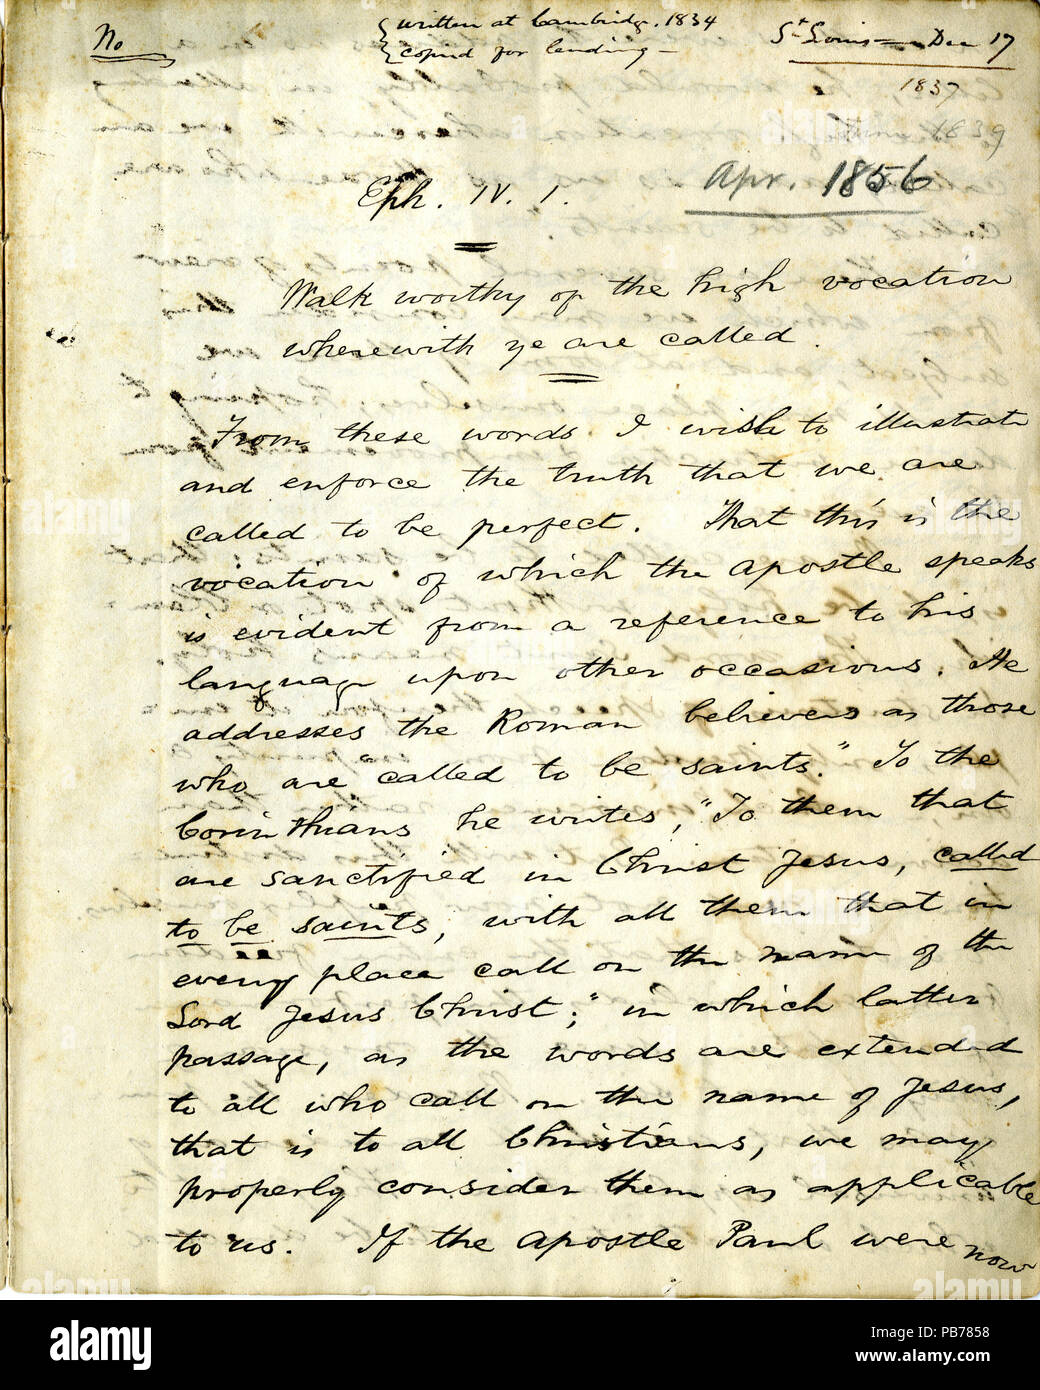 No
{written at Cambridge. 1834
{copied for lending—
St Louis — Dec 17
1837
1839
Apr. 1856
Eph. IV. 1.
Walk worthy of the high vocation
wherewith ye are called.
From these words I wish to illustrate
and enforce the truth that we are
called to be perfect. That this is the
vocation of which the Apostle speaks
is evident from a reference to his
language upon other occasions. He
addresses the Roman believers as those
who are "called to be saints." To the
Corinthians he writes, "To them that
are sanctified in Christ Jesus, called
to be saints, with all them that in
every place call on the name of the
Lord Jesus Christ;" in which latter
passage, as the words are extended
to all who call on the name of Jesus,
that is to all Christians, we may
properly consider them as applicable
to us. If the Apostle Paul were now
alamy
Image ID: PB7858
www.alamy.com